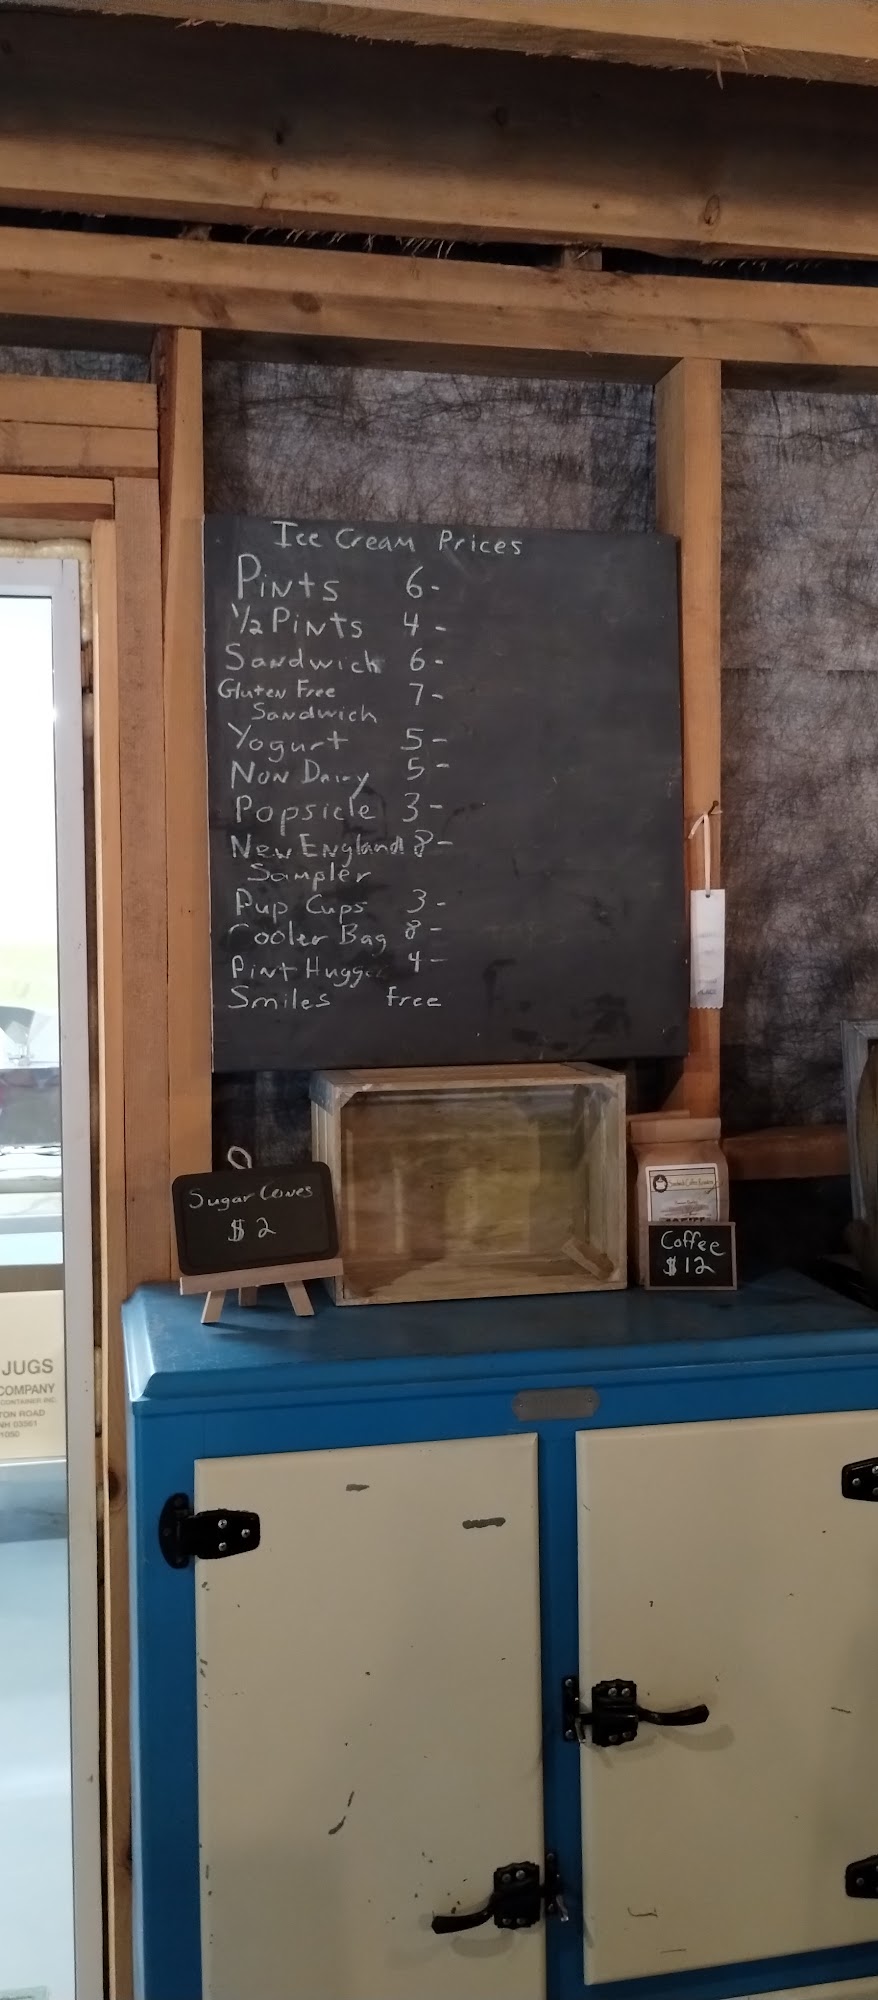 Ice Cream Prices
Pints 6-
1/2 Pints 4-
Sandwich 6-
Gluten Free 7-
Sandwich
Yogurt 5-
Non Dairy 5-
Popsicle 3-
New England 8-
Sampler
Pup Cups 3-
Cooler Bag 8-
Pint Hugge 4-
Smiles free
Sugar Cones
$2
Coffee
$12
JUGS
COMPANY
CONTAINER INC.
TON ROAD
NH 03561
1050